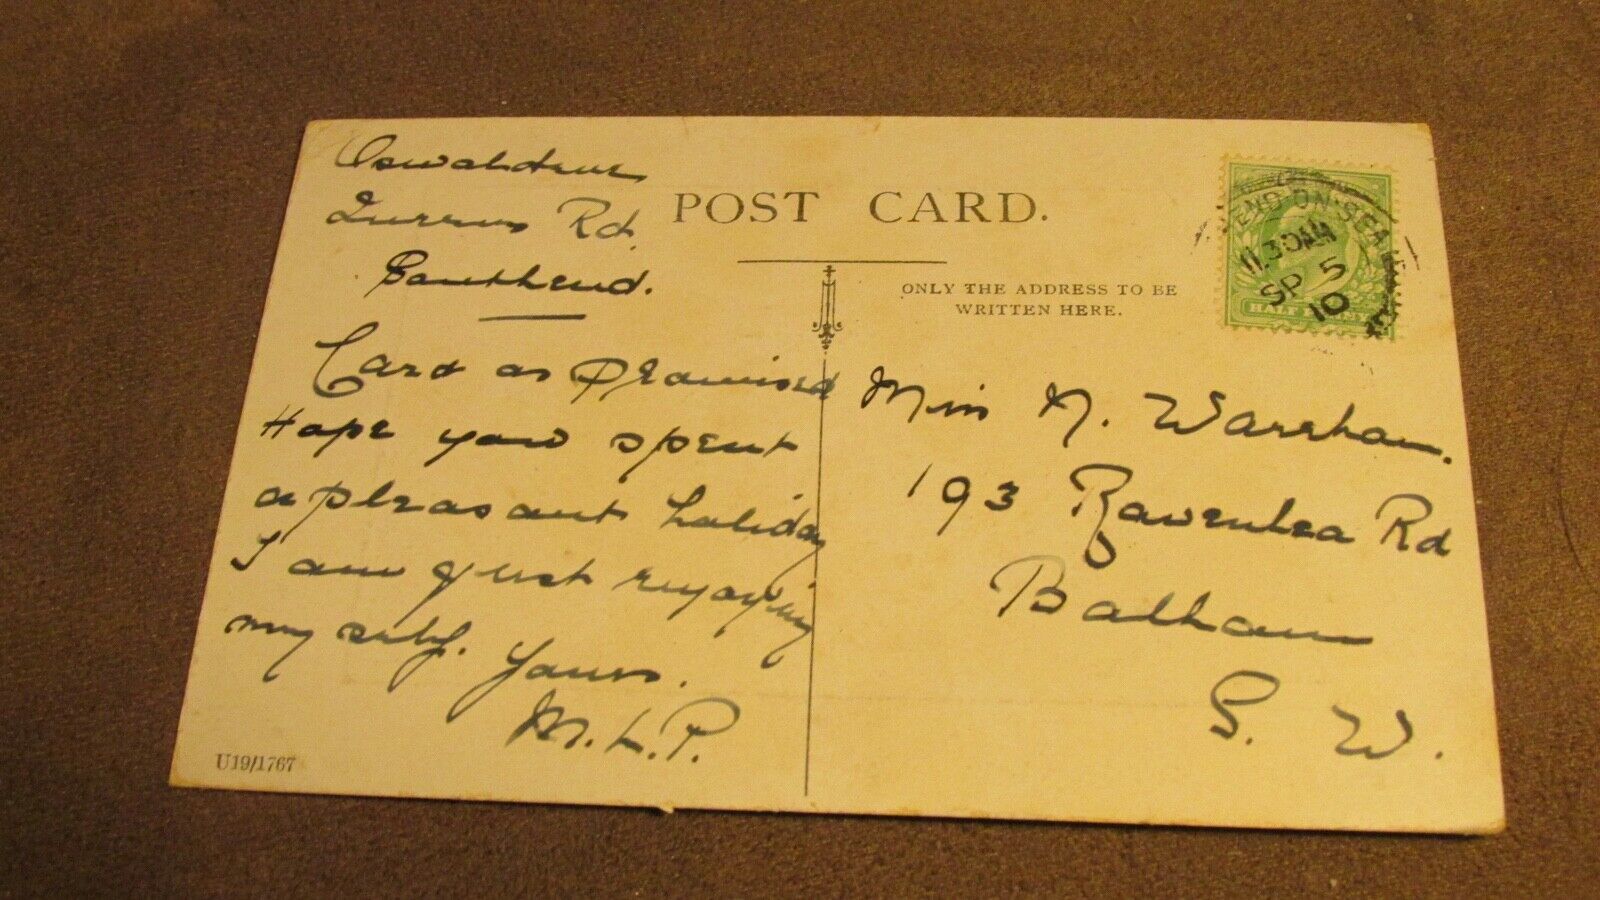 Rd.
Southend.
Card as promised
Hope you spent
a pleasant holiday
I am just enjoying
my self. Yours.
M. L. P.
U19/1767
POST CARD.
ONLY THE ADDRESS TO BE
WRITTEN HERE.
END-ON-SEA
11.30AM
SP 5
10
HALF
Miss N. Wareham.
193 Ravenslea Rd
Balham
S. W.